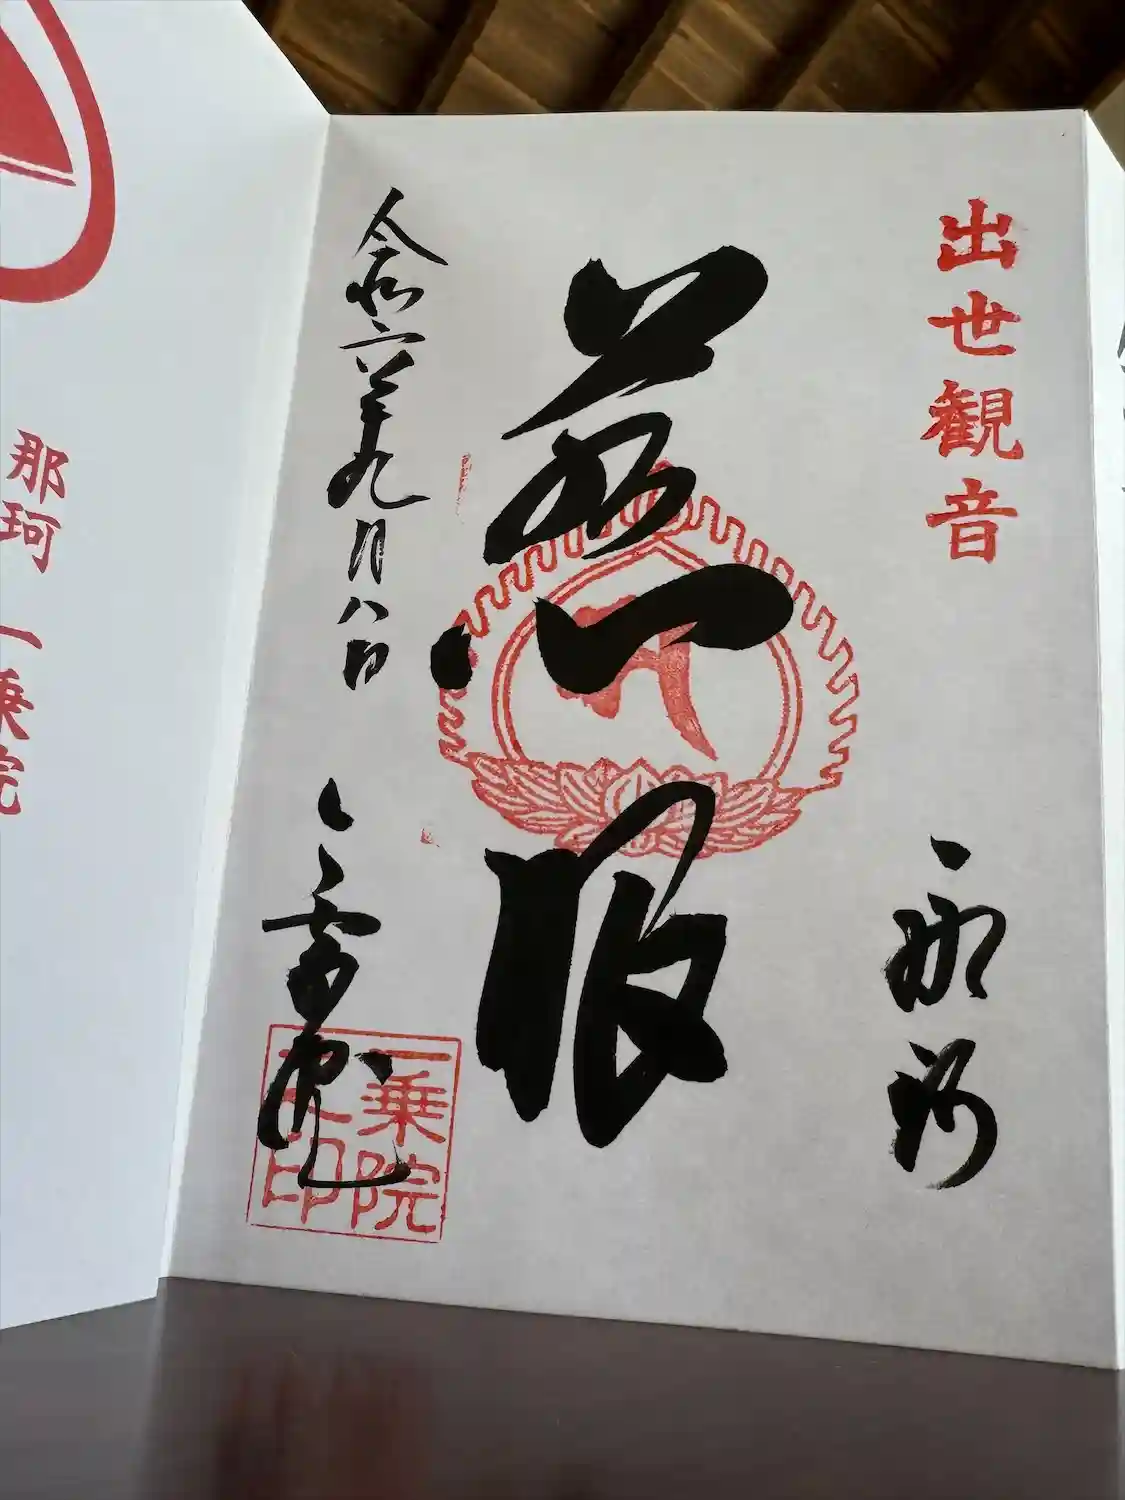 出世観音
那珂
慈眼
令和六年九月八日
一乗院
一乗院之印
那珂 一乗院